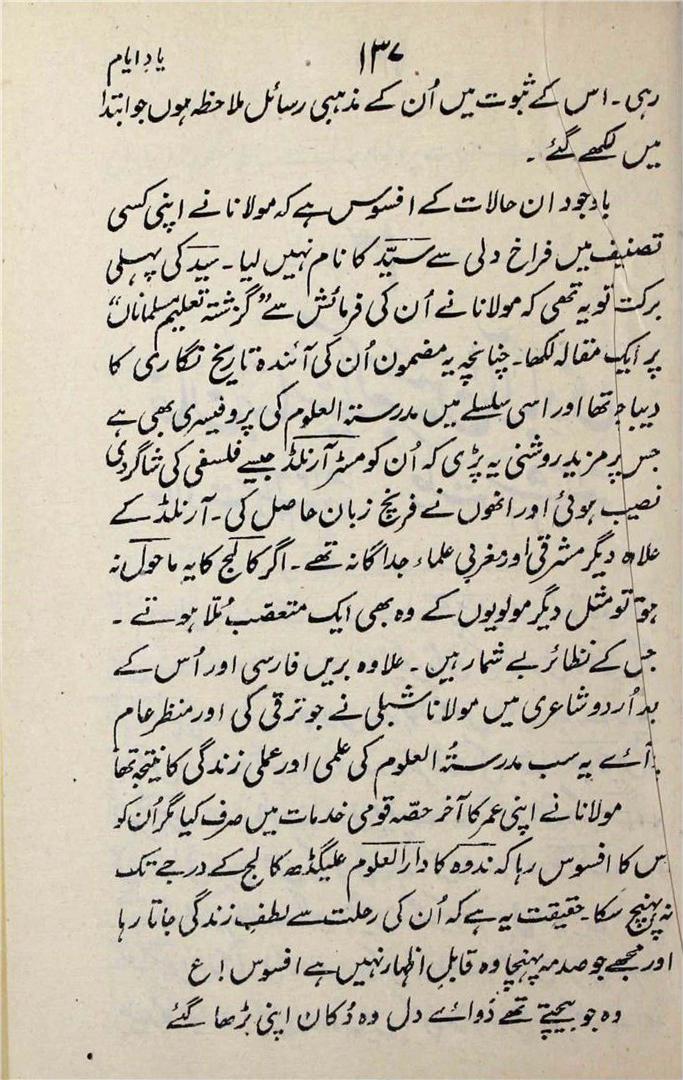 ۱۳۷ یادِ ایام
رہی۔ اس کے ثبوت میں اُن کے مذہبی رسائل ملاحظہ ہوں جو ابتدا
میں لکھے گئے۔
باوجود ان حالات کے افسوس ہے کہ مولانا نے اپنی کسی
تصنیف میں فراخ دلی سے سیّد کا نام نہیں لیا۔ سید کی پہلی
برکت تو یہ تھی کہ مولانا نے اُن کی فرمائش سے "گزشتہ تعلیم مسلمانان"
پر ایک مقالہ لکھا۔ چنانچہ یہ مضمون اُن کی آئندہ تاریخ نگاری کا
دیباچہ تھا اور اسی سلسلے میں مدرستہ العلوم کی پروفیسری بھی ہے
جس پر مزید روشنی یہ پڑی کہ اُن کو مسٹر آرنلڈ جیسے فلسفی کی شاگردی
نصیب ہوئی اور انھوں نے فرنچ زبان حاصل کی۔ آرنلڈ کے
علاوہ دیگر مشرقی اور مغربی علماء جداگانہ تھے۔ اگر کالج کا یہ ماحول نہ
ہوتا تو مثل دیگر مولویوں کے وہ بھی ایک متعصب مُلّا ہوتے۔
جس کے نظائر بے شمار ہیں۔ علاوہ بریں فارسی اور اُس کے
بعد اُردو شاعری میں مولانا شبلی نے جو ترقی کی اور منظر عام
پر آئے یہ سب مدرستُہ العلوم کی علمی اور عملی زندگی کا نتیجہ تھا
مولانا نے اپنی عمر کا آخر حصّہ قومی خدمات میں صرف کیا مگر اُن کو
اس کا افسوس رہا کہ ندوہ کا دارالعلوم علیگڈھ کالج کے درجے تک
نہ پہنچ سکا۔ حقیقت یہ ہے کہ اُن کی رحلت سے لطفِ زندگی جاتا رہا
اور مجھے جو صدمہ پہنچا وہ قابلِ اظہار نہیں ہے افسوس! ع
وہ جو بیچتے تھے دَوائے دل وہ دُکان اپنی بڑھا گئے